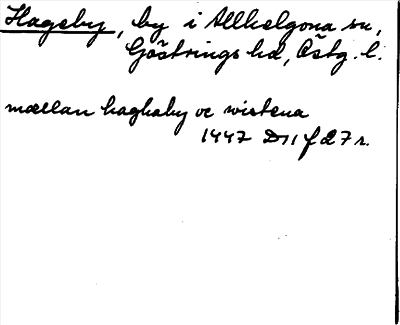 Hageby, by i Allhelgona sn,
Göstrings hd, Östg. l.
mællan haghaby oc wistena
1447 D11 f 27 r.